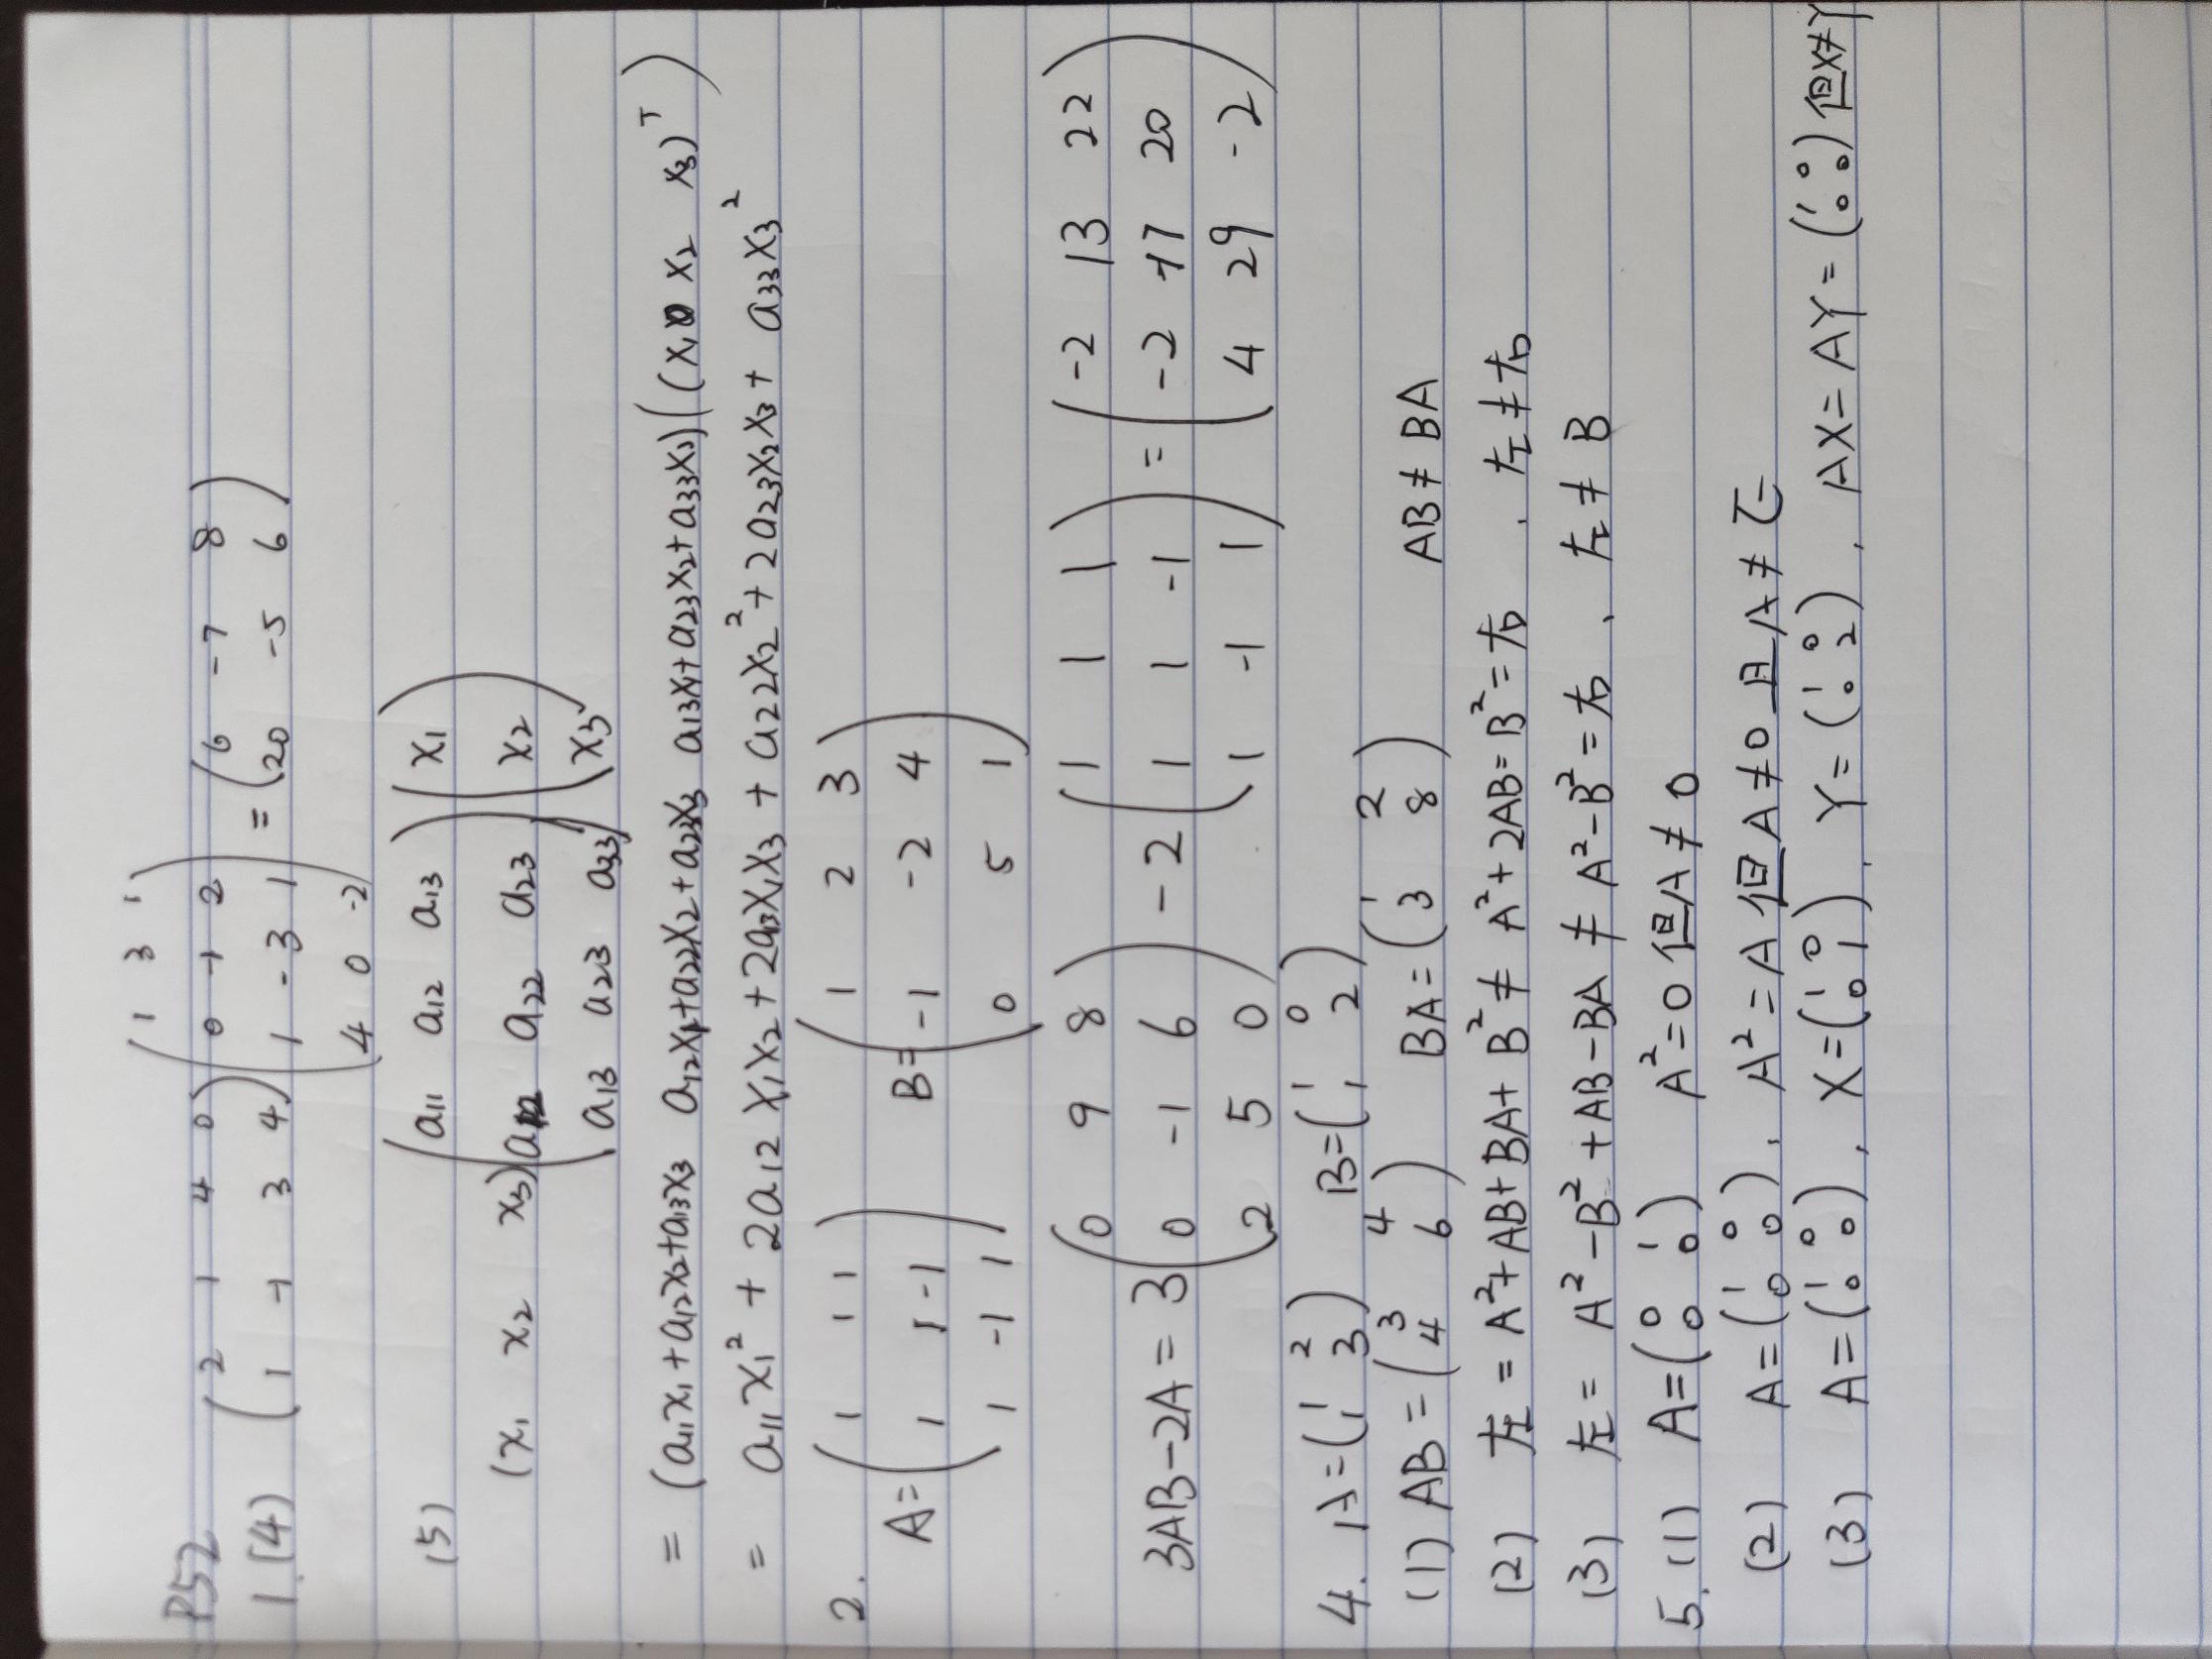 P52
1.(4) (2 1 4 0
1 -1 3 4) (1 3 1
0 -1 2
1 -3 1
4 0 -2) = (6 -7 8
20 -5 6)
(5) (x1 x2 x3) (a11 a12 a13
a12 a22 a23
a13 a23 a33) (x1
x2
x3)
= (a11x1+a12x2+a13x3 a12x1+a22x2+a23x3 a13x1+a23x2+a33x3)(x1 x2 x3)^T)
= a11x1²+2a12x1x2+2a13x1x3+a22x2²+2a23x2x3+a33x3²
2.
A=(1 1 1
1 1 -1
1 -1 1) B=(1 2 3
-1 -2 4
0 5 1)
3AB-2A=3(0 9 8
0 -1 6
2 5 0) -2(1 1 1
1 1 -1
1 -1 1) = (-2 13 22
-2 17 20
4 29 -2)
4. A=(1 2
1 3) B=(1 0
1 2)
(1) AB=(3 4
4 6) BA=(1 2
3 8) AB≠BA
(2) 左=A²+AB+BA+B²≠A²+2AB=B²=右. 左≠右
(3) 左=A²-B²+AB-BA≠A²-B²=右. 左≠B
5.(1) A=(0 1
0 0) A²=0但A≠0
(2) A=(1 0
0 0), A²=A但A≠0且A≠E
(3) A=(1 0
0 0), X=(1 0
0 1), Y=(1 0
0 2), AX=AY=(1 0
0 0)但X≠Y